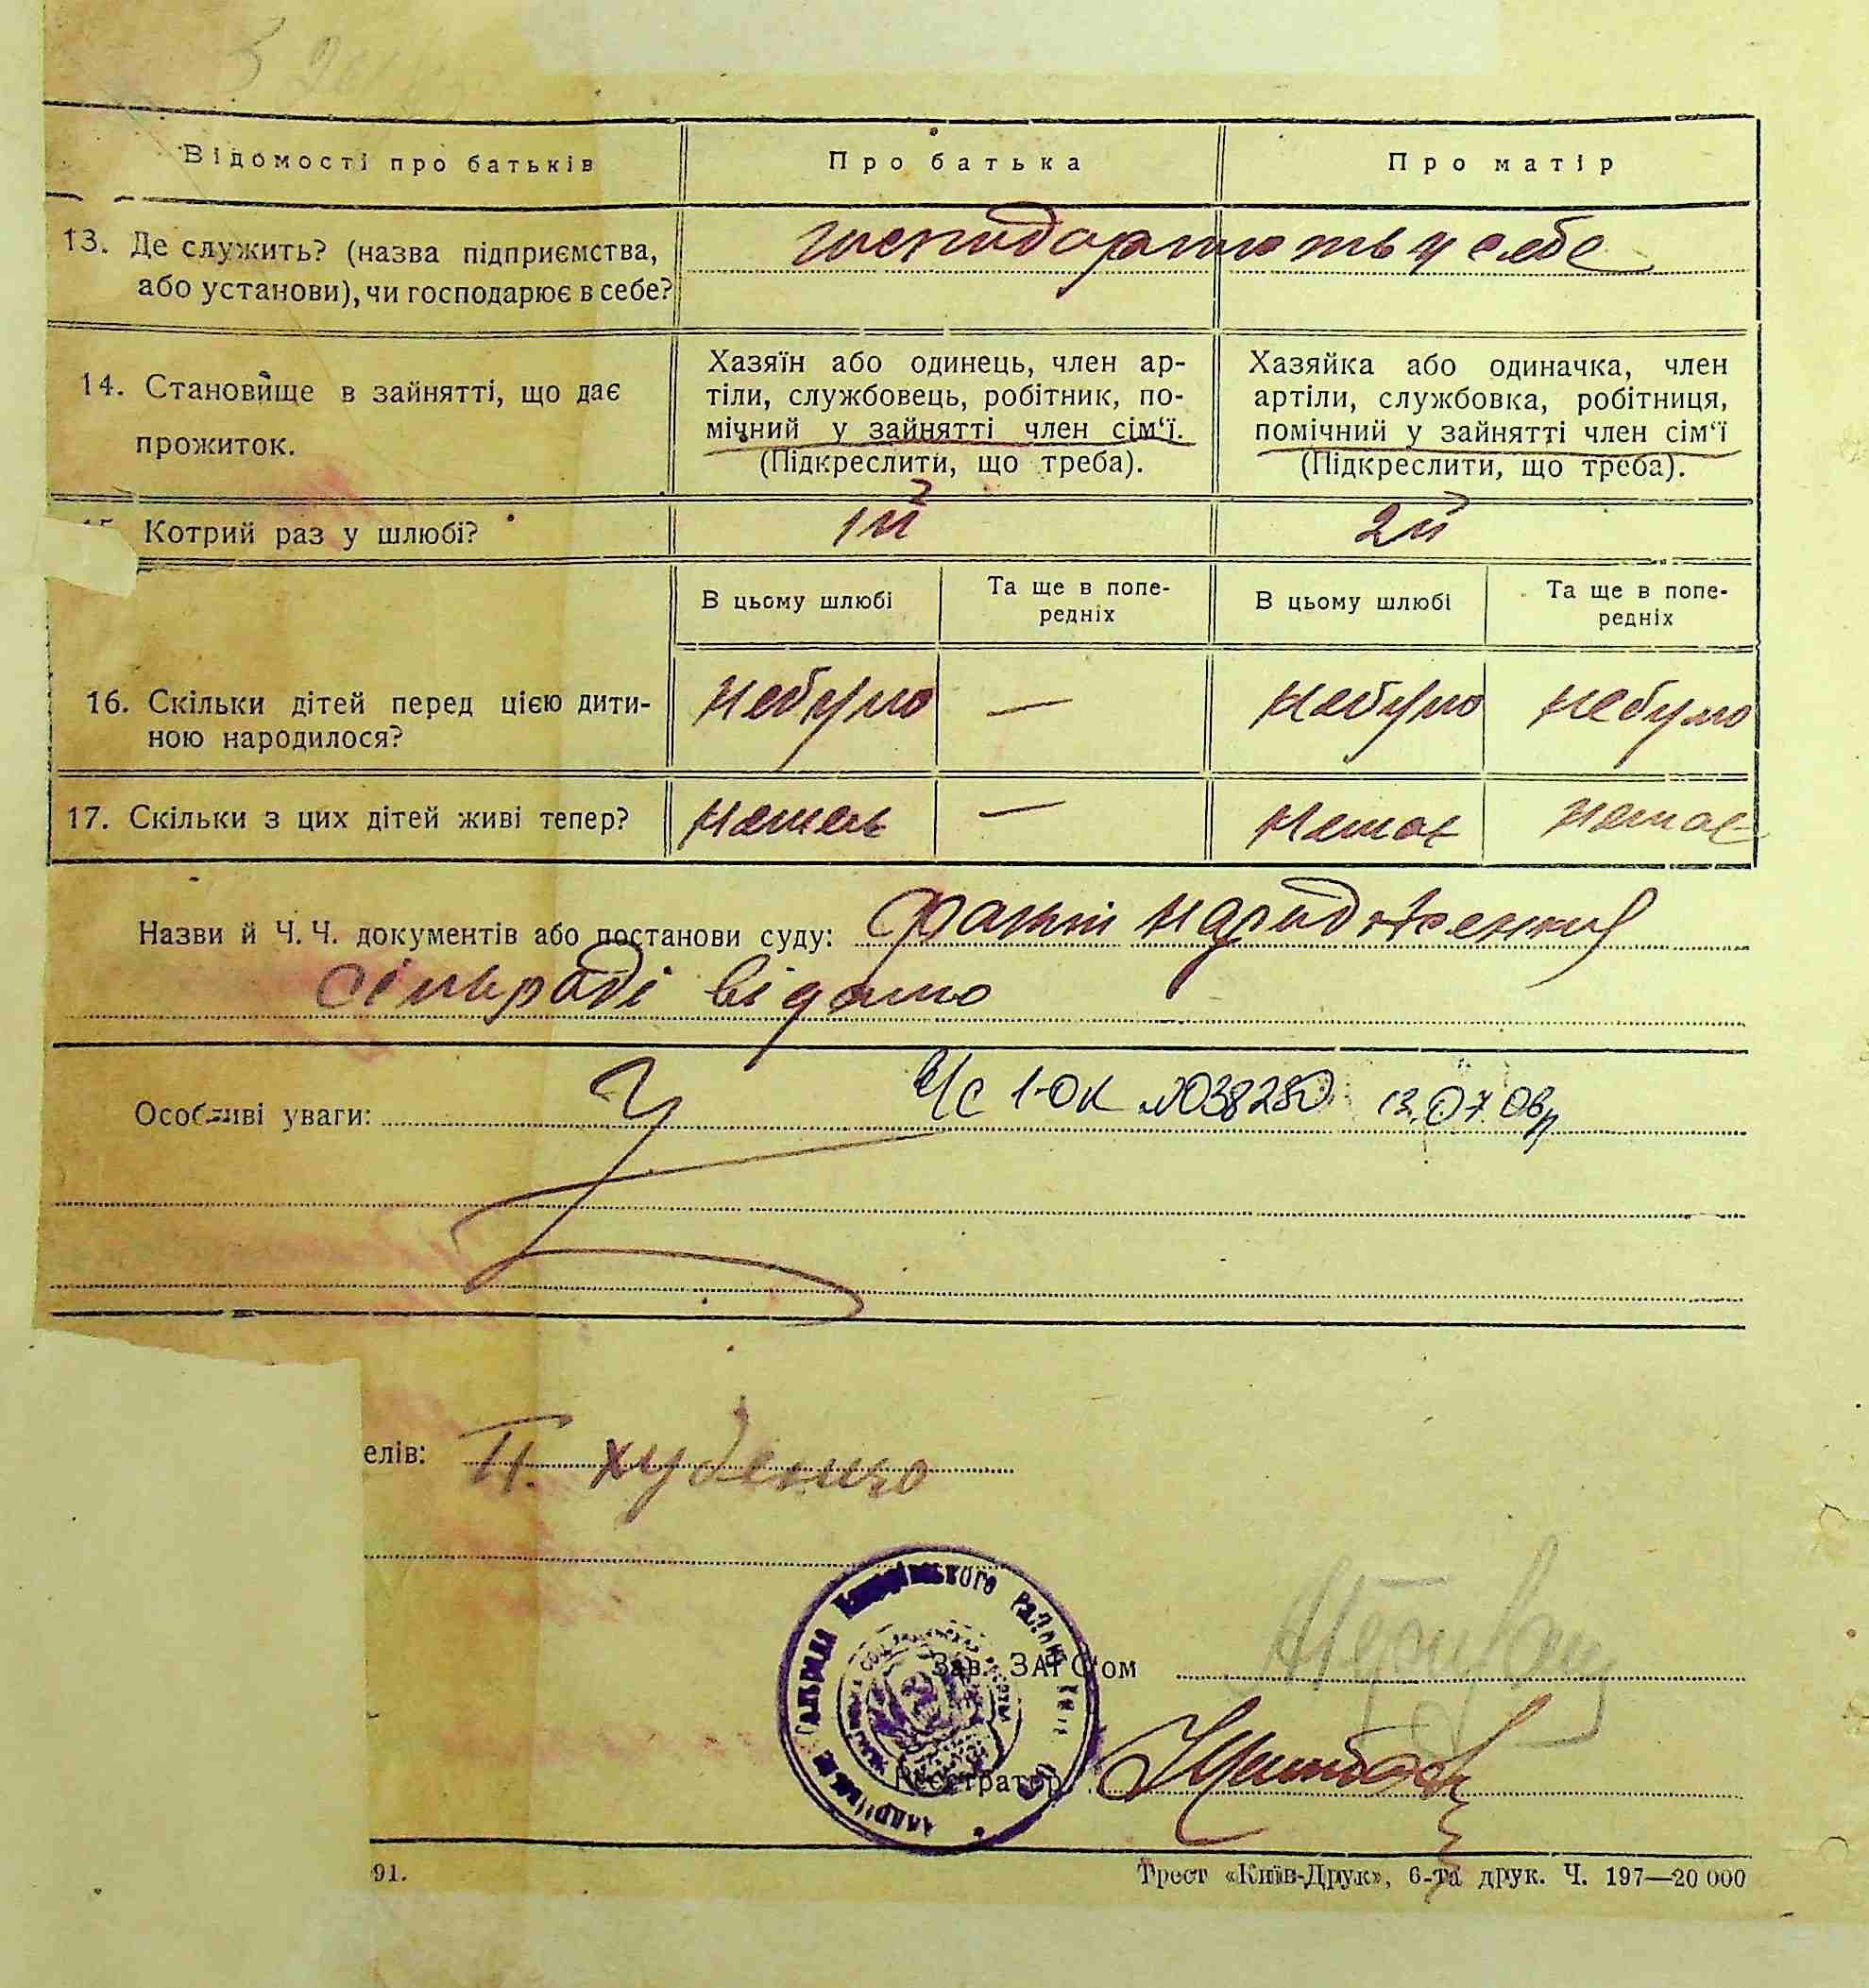 Відомості про батьків
Про батька
Про матір
13. Де служить? (назва підприємства,
або установи), чи господарює в себе?
господарюють у себе
14. Становище в зайнятті, що дає
прожиток.
Хазяїн або одинець, член ар-
тіли, службовець, робітник, по-
мічний у зайнятті член сім‘ї.
(Підкреслити, що треба).
Хазяйка або одиначка, член
артіли, службовка, робітниця,
помічний у зайнятті член сім‘ї
(Підкреслити, що треба).
Котрий раз у шлюбі?
1й
2й
В цьому шлюбі
Та ще в попе-
редніх
В цьому шлюбі
Та ще в попе-
редніх
16. Скільки дітей перед цією дити-
ною народилося?
небуло
—
небуло
небуло
17. Скільки з цих дітей живі тепер?
немає
—
немає
немає
Назви й Ч. Ч. документів або постанови суду: факт народження
сільраді відомо
Особливі уваги:
с 1-ОК №038280 13.07.06р
елів: П. Худенко
району
Зав. ЗАГС'ом
Реєстратор
91.
Трест «Київ-Друк», 6-та друк. Ч. 197—20 000